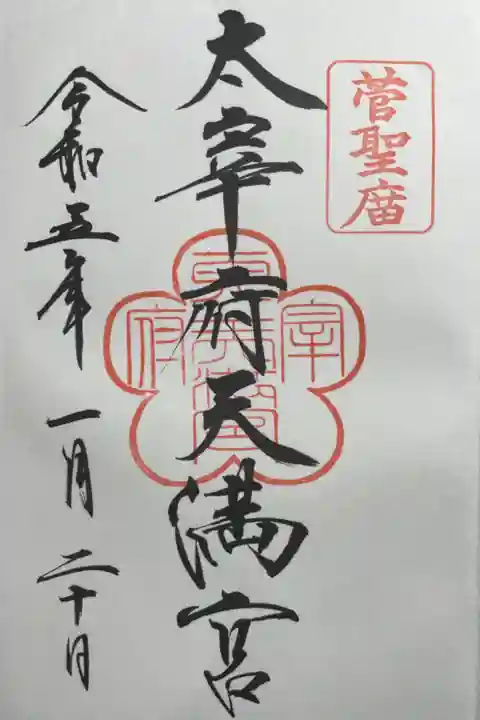 菅聖庿
太宰府天満宮
令和五年 一月二十日